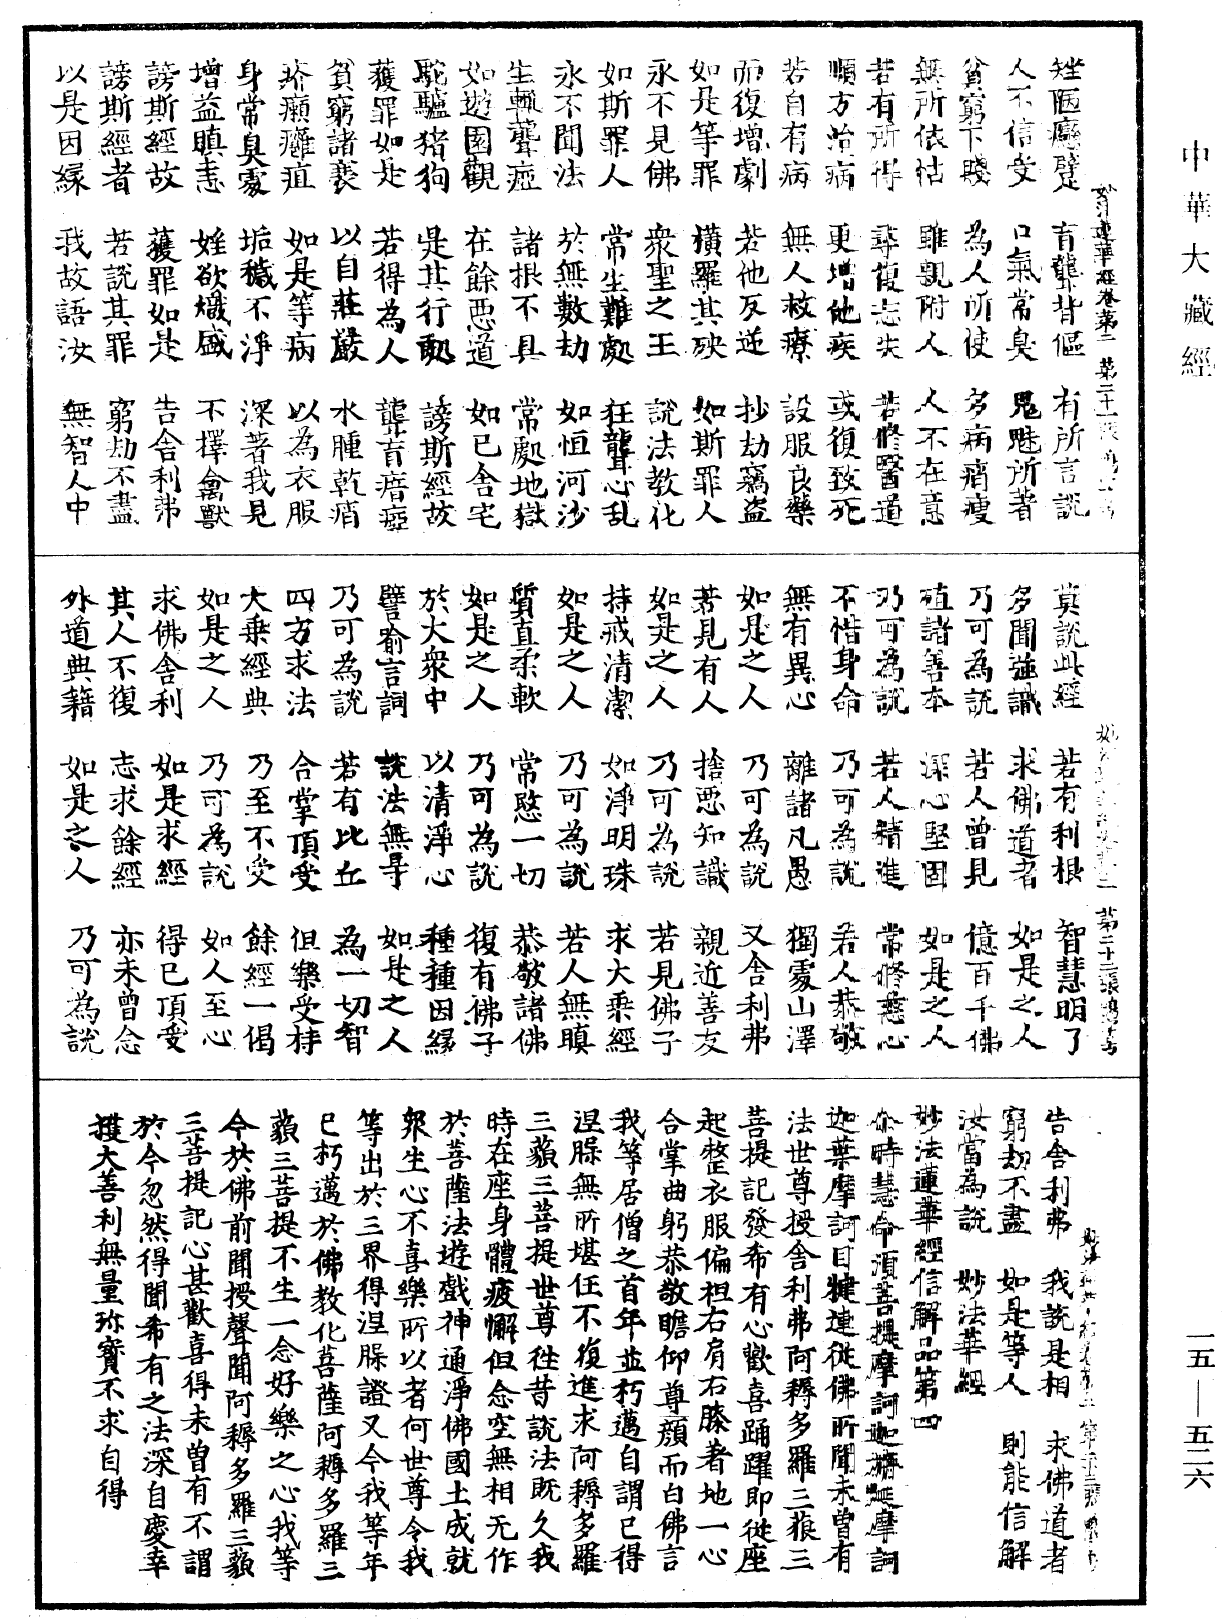 中華大藏經
矬陋癵躄　盲聾背傴　有所言說
人不信受　口氣常臭　鬼魅所著
貧窮下賤　為人所使　多病痟瘦
無所依怙　雖親附人　人不在意
若有所得　尋復忘失　若修醫道
順方治病　更增他疾　或復致死
若自有病　無人救療　設服良藥
而復增劇　若他反逆　抄劫竊盜
如是等罪　橫羅其殃　如斯罪人
永不見佛　衆聖之王　說法教化
如斯罪人　常生難處　狂聾心亂
永不聞法　於無數劫　如恒河沙
生輒聾瘂　諸根不具　常處地獄
如遊園觀　在餘惡道　如已舍宅
駝驢猪狗　是其行處　謗斯經故
獲罪如是　若得為人　聾盲瘖瘂
貧窮諸衰　以自莊嚴　水腫乾痟
疥癩癰疽　如是等病　以為衣服
身常臭處　垢穢不淨　深著我見
增益瞋恚　婬欲熾盛　不擇禽獸
謗斯經故　獲罪如是　告舍利弗
謗斯經者　若說其罪　窮劫不盡
以是因緣　我故語汝　無智人中
莫說此經　若有利根　智慧明了
多聞強識　求佛道者　如是之人
乃可為說　若人曾見　億百千佛
殖諸善本　深心堅固　如是之人
乃可為說　若人精進　常修慈心
不惜身命　乃可為說　若人恭敬
無有異心　離諸凡愚　獨處山澤
如是之人　乃可為說　又舍利弗
若見有人　捨惡知識　親近善友
如是之人　乃可為說　若見佛子
持戒清潔　如淨明珠　求大乘經
如是之人　乃可為說　若人無瞋
質直柔軟　常愍一切　恭敬諸佛
如是之人　乃可為說　復有佛子
於大衆中　以清淨心　種種因緣
譬喻言詞　說法無㝵　如是之人
乃可為說　若有比丘　為一切智
四方求法　合掌頂受　但樂受持
大乘經典　乃至不受　餘經一偈
如是之人　乃可為說　如人至心
求佛舍利　如是求經　得已頂受
其人不復　志求餘經　亦未曾念
外道典籍　如是之人　乃可為說
告舍利弗　我說是相　求佛道者
窮劫不盡　如是等人　則能信解
汝當為說　妙法華經
妙法蓮華經信解品第四
尒時慧命須菩提摩訶迦旃延摩訶
迦葉摩訶目揵連從佛所聞未曾有
法世尊授舍利弗阿耨多羅三藐三
菩提記發希有心歡喜踊躍即從座
起整衣服偏袒右肩右膝著地一心
合掌曲躬恭敬瞻仰尊顏而白佛言
我等居僧之首年並朽邁自謂已得
涅槃無所堪任不復進求阿耨多羅
三藐三菩提世尊往昔說法既久我
時在座身體疲懈但念空無相无作
於菩薩法遊戲神通淨佛國土成就
衆生心不喜樂所以者何世尊令我
等出於三界得涅槃證又今我等年
已朽邁於佛教化菩薩阿耨多羅三
藐三菩提不生一念好樂之心我等
今於佛前聞授聲聞阿耨多羅三藐
三菩提記心甚歡喜得未曾有不謂
於今忽然得聞希有之法深自慶幸
獲大善利無量珎寶不求自得
一五—五二六